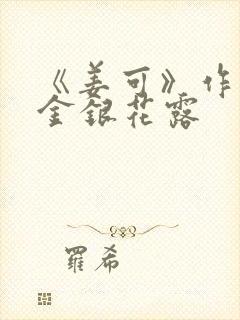 《姜可》作
金銀花露
羅希